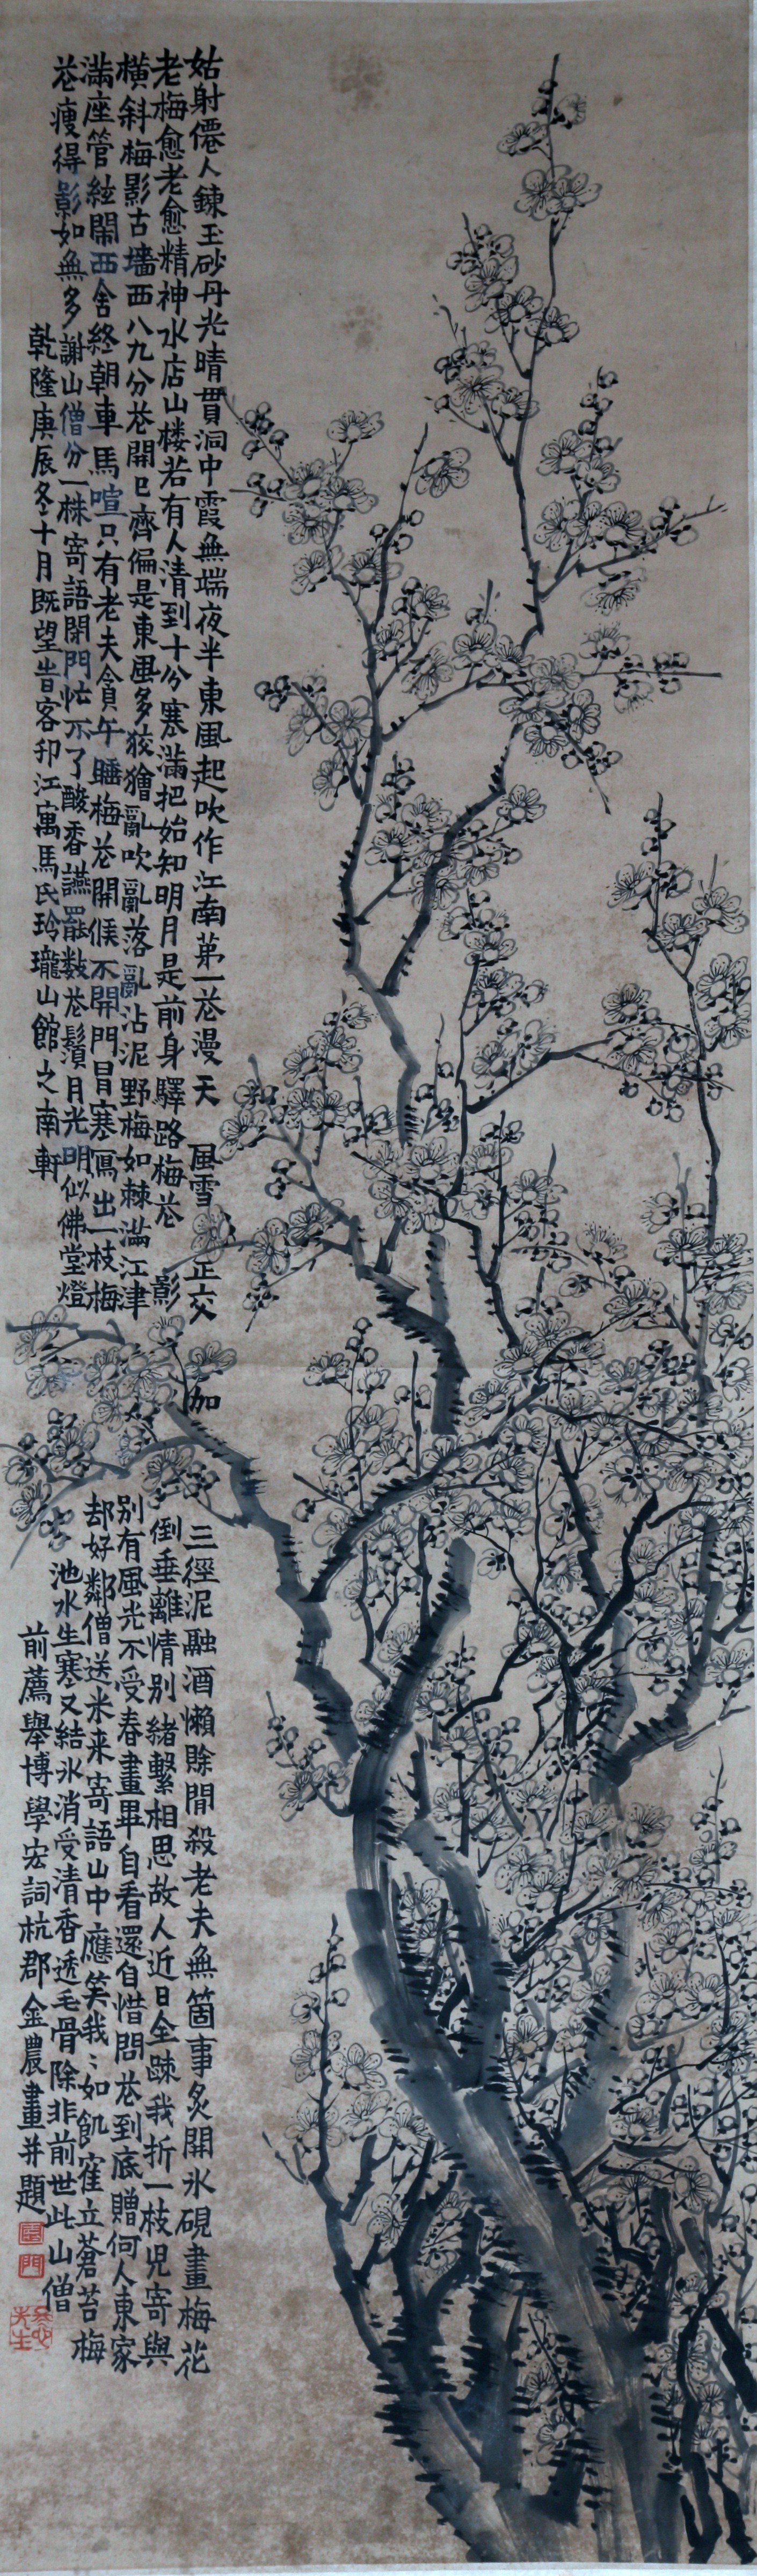 姑射僊人鍊玉砂丹光晴貫洞中霞無端夜半東風起吹作江南第一花漫天風雪正交加
老梅愈老愈精神水店山樓若有人清到十分寒滿把始知明月是前身驛路梅花影
橫斜梅影古墻西八九分花開已齊偏是東風多狡獪亂吹亂落亂沾泥野梅如棘滿江津
滿座管絃鬧西舍終朝車馬喧只有老夫貪午睡梅花開候不開門冒寒寫出一枝梅
花瘦得影如無多謝山僧分一株寄語閉門忙不了酸香讌罷數花鬚月光明似佛堂燈
乾隆庚辰冬十月既望昔客邗江寓馬氏玲瓏山館之南軒
三徑泥融酒懶賒閒殺老夫無箇事炙開冰硯畫梅花
倒垂離情別緒繫相思故人近日全踈我折一枝兒寄與
別有風光不受春畫畢自看還自惜問花到底贈何人東家
却好鄰僧送米來寄語山中應笑我我如飢寉立蒼苔梅
池水生寒又結冰消受清香透毛骨除非前世此山僧
前薦舉博學宏詞杭郡金農畫并題